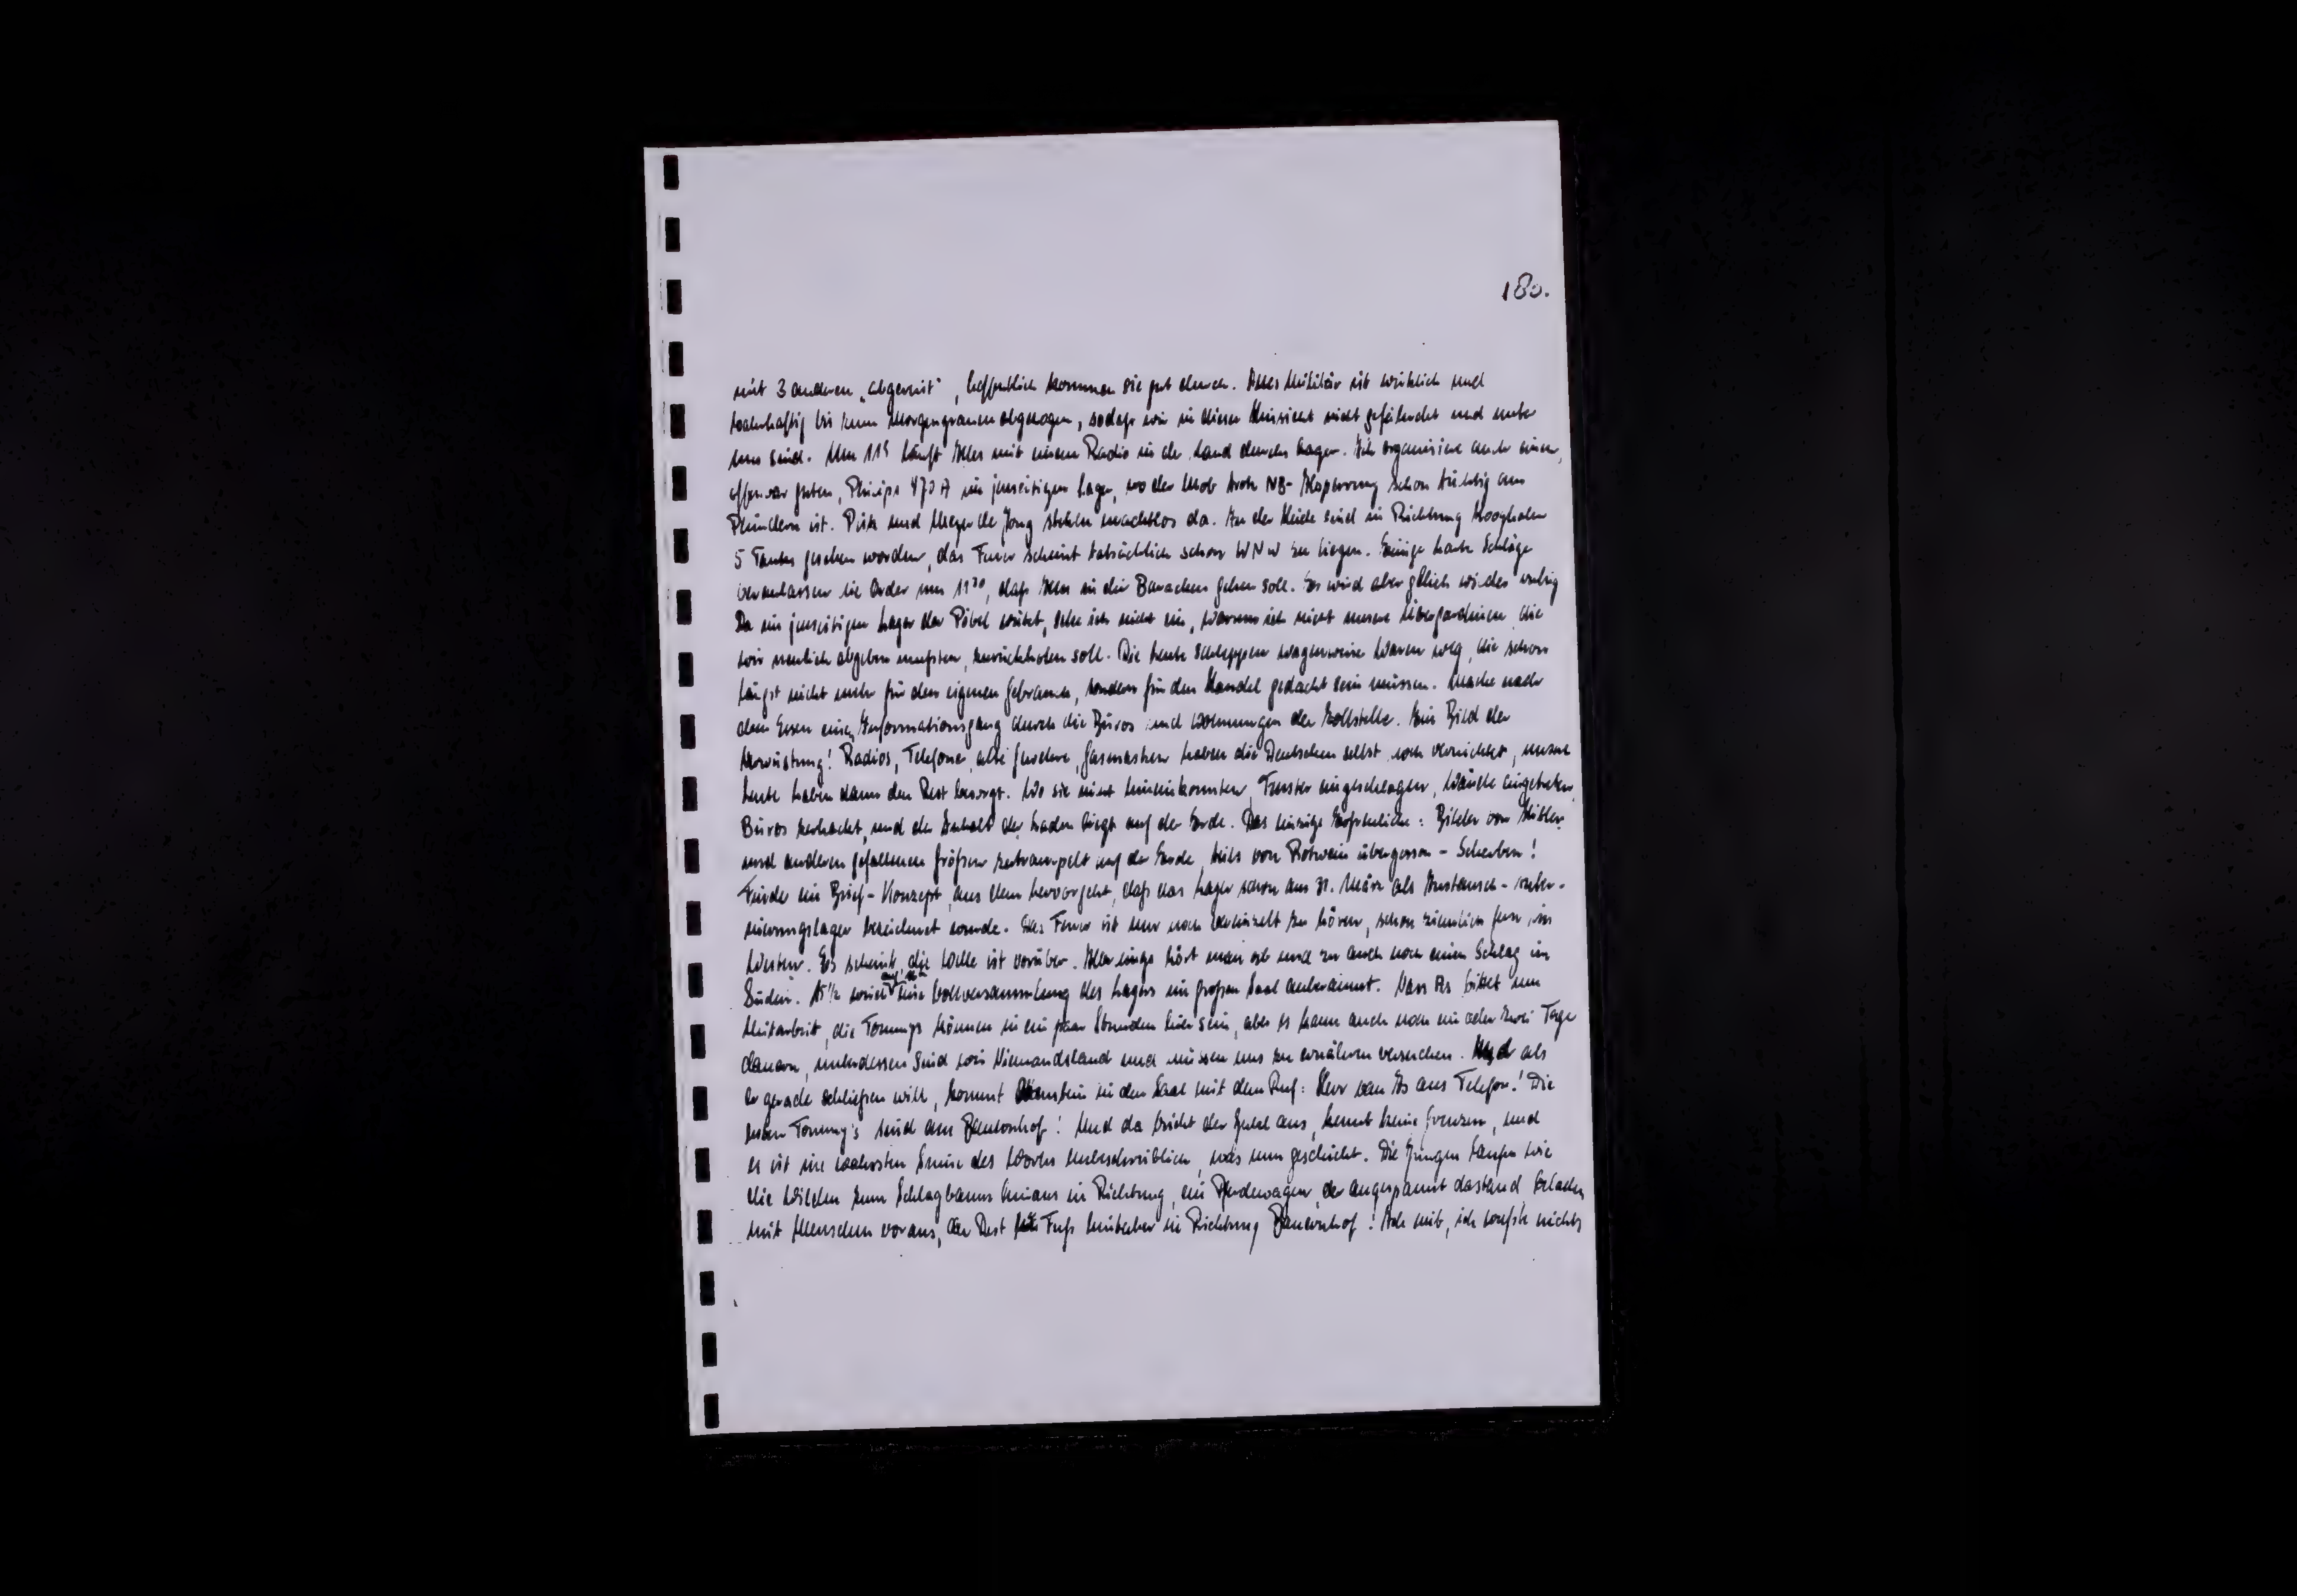 180.
mit 3 anderen „abgereist", hoffentlich kommen sie gut durch. Alles Militär ist wirklich und
wahrhaftig bis zum Morgengrauen abgezogen, sodaß wir in dieser Hinsicht nicht gefährdet und unter
uns sind. Um 11⁵ läuft Alles mit einem Radio in der Hand durchs Lager. Ich organisiere auch einen,
offenbar guten, Philips 470 A im jenseitigen Lager, wo der Mob trotz NB- schon tüchtig am
Plündern ist. Pisk und Meyer de Jong stehen machtlos da. An der Heide sind in Richtung Hooghalen
5 Tanks gesehen worden, das Feuer scheint tatsächlich schon WNW zu liegen. Einige harte Schläge
veranlassen die Order um 11³⁰, daß Alles in die Baracken gehen soll. Es wird aber gleich wieder ruhig
Da im jenseitigen Lager der Pöbel wütet, sehe ich nicht ein, warum ich nicht unsere Übergardinen, die
wir neulich abgeben mußten, zurückholen soll. Die Leute schleppen wagenweise Waren weg, die schon
längst nicht mehr für den eigenen Gebrauch, sondern für den Handel gedacht sein müssen. Mache nach
dem Essen einen Informationsgang durch die Büros und Wohnungen der . Ein Bild der
Verwüstung! Radios, Telefone, alte Gewehre, Gasmasken haben die Deutschen selbst noch vernichtet, unsere
Leute haben dann den Rest besorgt. Wo sie nicht hineinkonnten, Fenster eingeschlagen, Wände eingetreten,
Büros zerhackt, und der Inhalt der Laden liegt auf der Erde. Das einzige Erfreuliche: Bilder von Hitler
und anderen gefallenen Größen zertrampelt auf der Erde, teils von Rotwein übergossen - Scherben!
Finde ein Brief-Konzept, aus dem hervorgeht, daß das Lager schon am 31. März als Austausch-Inter-
nierungslager bezeichnet wurde. Das Feuer ist nur noch vereinzelt zu hören, schon ziemlich fern im
Westen. Es scheint, die Welle ist vorüber. Allerdings hört man ab und zu auch noch einen Schlag im
Süden. 15½ wird eine Vollversammlung des Lagers im großen Saal anberaumt. Van As bittet um
Mitarbeit, die Tommys können in ein paar Stunden hier sein, aber es kann auch noch ein oder zwei Tage
dauern, unterdessen sind wir Niemandsland und müssen uns zu ernähren versuchen. Und als
er gerade schließen will, kommt in den Saal mit dem Ruf: Herr van As ans Telefon! Die
ersten Tommy's sind am Bauernhof! Und da bricht der Jubel aus, kennt keine Grenzen, und
es ist im wahrsten Sinne des Wortes unbeschreiblich, was nun geschieht. Die Jungen laufen wie
die Wilden zum Schlagbaum hinaus in Richtung, ein Pferdewagen, der angespannt dastand, beladen
mit Menschen voraus, der Rest zu Fuß hinterher in Richtung Bauernhof! Ich mit, ich wußte nichts